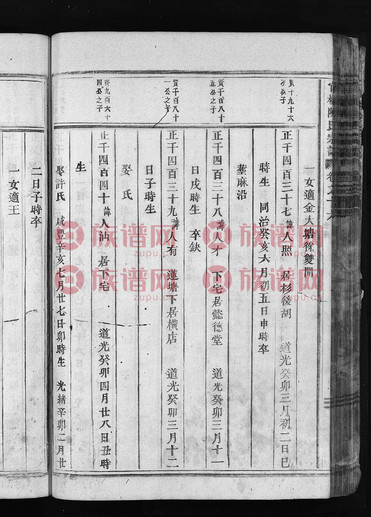 一女適金大塘徐雙開
正千四百三十七諱人照 居杉後胡 道光癸卯三月初二日巳
時生 同治癸亥六月初五日申時卒
葬麻沿
正千四百三十八諱人才 下宅居懿德堂 道光癸卯三月十一
日戌時生 卒缺
正千四百三十九諱人有 蓮塘下居橫店 道光癸卯三月十二
日子時生
娶氏
正千四百四十諱人汕 居下宅 道光癸卯四月廿八日丑時
生
娶許氏 咸豐辛亥七月廿七日卯時生 光緒辛卯二月廿
二日子時卒
一女適王
族谱网
zupu.cn